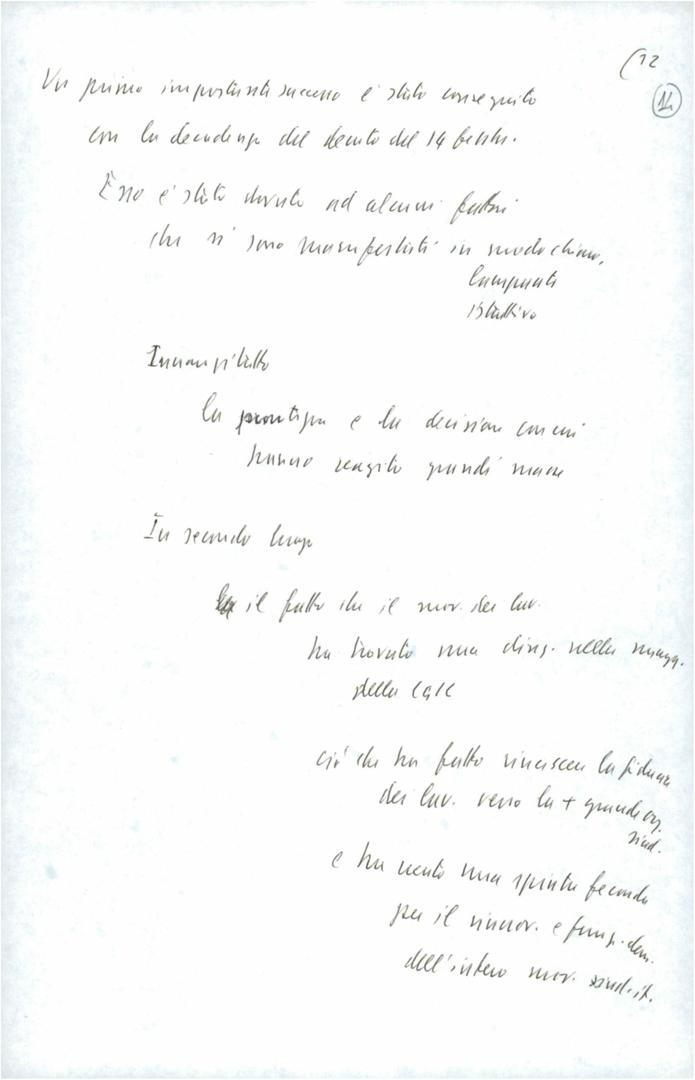 (12
14
Un primo importante successo è stato conseguito
con la decadenza del decreto del 14 febbr.
Esso è stato dovuto ad alcuni fattori
che si sono manifestati in modo chiaro,
lampante
istruttivo
Innanzitutto
la prontezza e la decisione con cui
hanno reagito grandi masse
In secondo luogo
il fatto che il mov. dei lav.
ha trovato una direz. nella magg.
della CGIL
ciò che ha fatto rinascere la fiducia
dei lav. verso la + grande org.
sind.
e ha creato una spinta feconda
per il rinnov. e funz. dem.
dell'intero mov. sind. it.